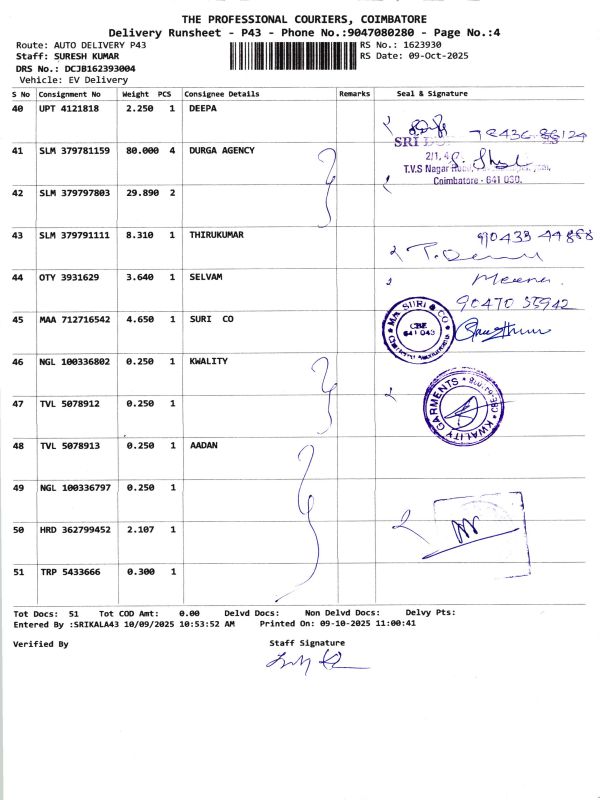 THE PROFESSIONAL COURIERS, COIMBATORE
Delivery Runsheet - P43 - Phone No.:9047080280 - Page No.:4
Route: AUTO DELIVERY P43 RS No.: 1623930
Staff: SURESH KUMAR RS Date: 09-Oct-2025
DRS No.: DCJB162393004
Vehicle: EV Delivery
S No Consignment No Weight PCS Consignee Details Remarks Seal & Signature
40 UPT 4121818 2.250 1 DEEPA
41 SLM 379781159 80.000 4 DURGA AGENCY
SRI
2/1,
T.V.S Nagar
Coimbatore - 641 030.
42 SLM 379797803 29.890 2
43 SLM 379791111 8.310 1 THIRUKUMAR
90433 44888
44 OTY 3931629 3.640 1 SELVAM
Meena
90470 35942
45 MAA 712716542 4.650 1 SURI CO
SURI & CO
CBE
641 043
46 NGL 100336802 0.250 1 KWALITY
KWALITY GARMENTS
47 TVL 5078912 0.250 1
48 TVL 5078913 0.250 1 AADAN
49 NGL 100336797 0.250 1
50 HRD 362799452 2.107 1
51 TRP 5433666 0.300 1
Tot Docs: 51 Tot COD Amt: 0.00 Delvd Docs: Non Delvd Docs: Delvy Pts:
Entered By :SRIKALA43 10/09/2025 10:53:52 AM Printed On: 09-10-2025 11:00:41
Verified By Staff Signature